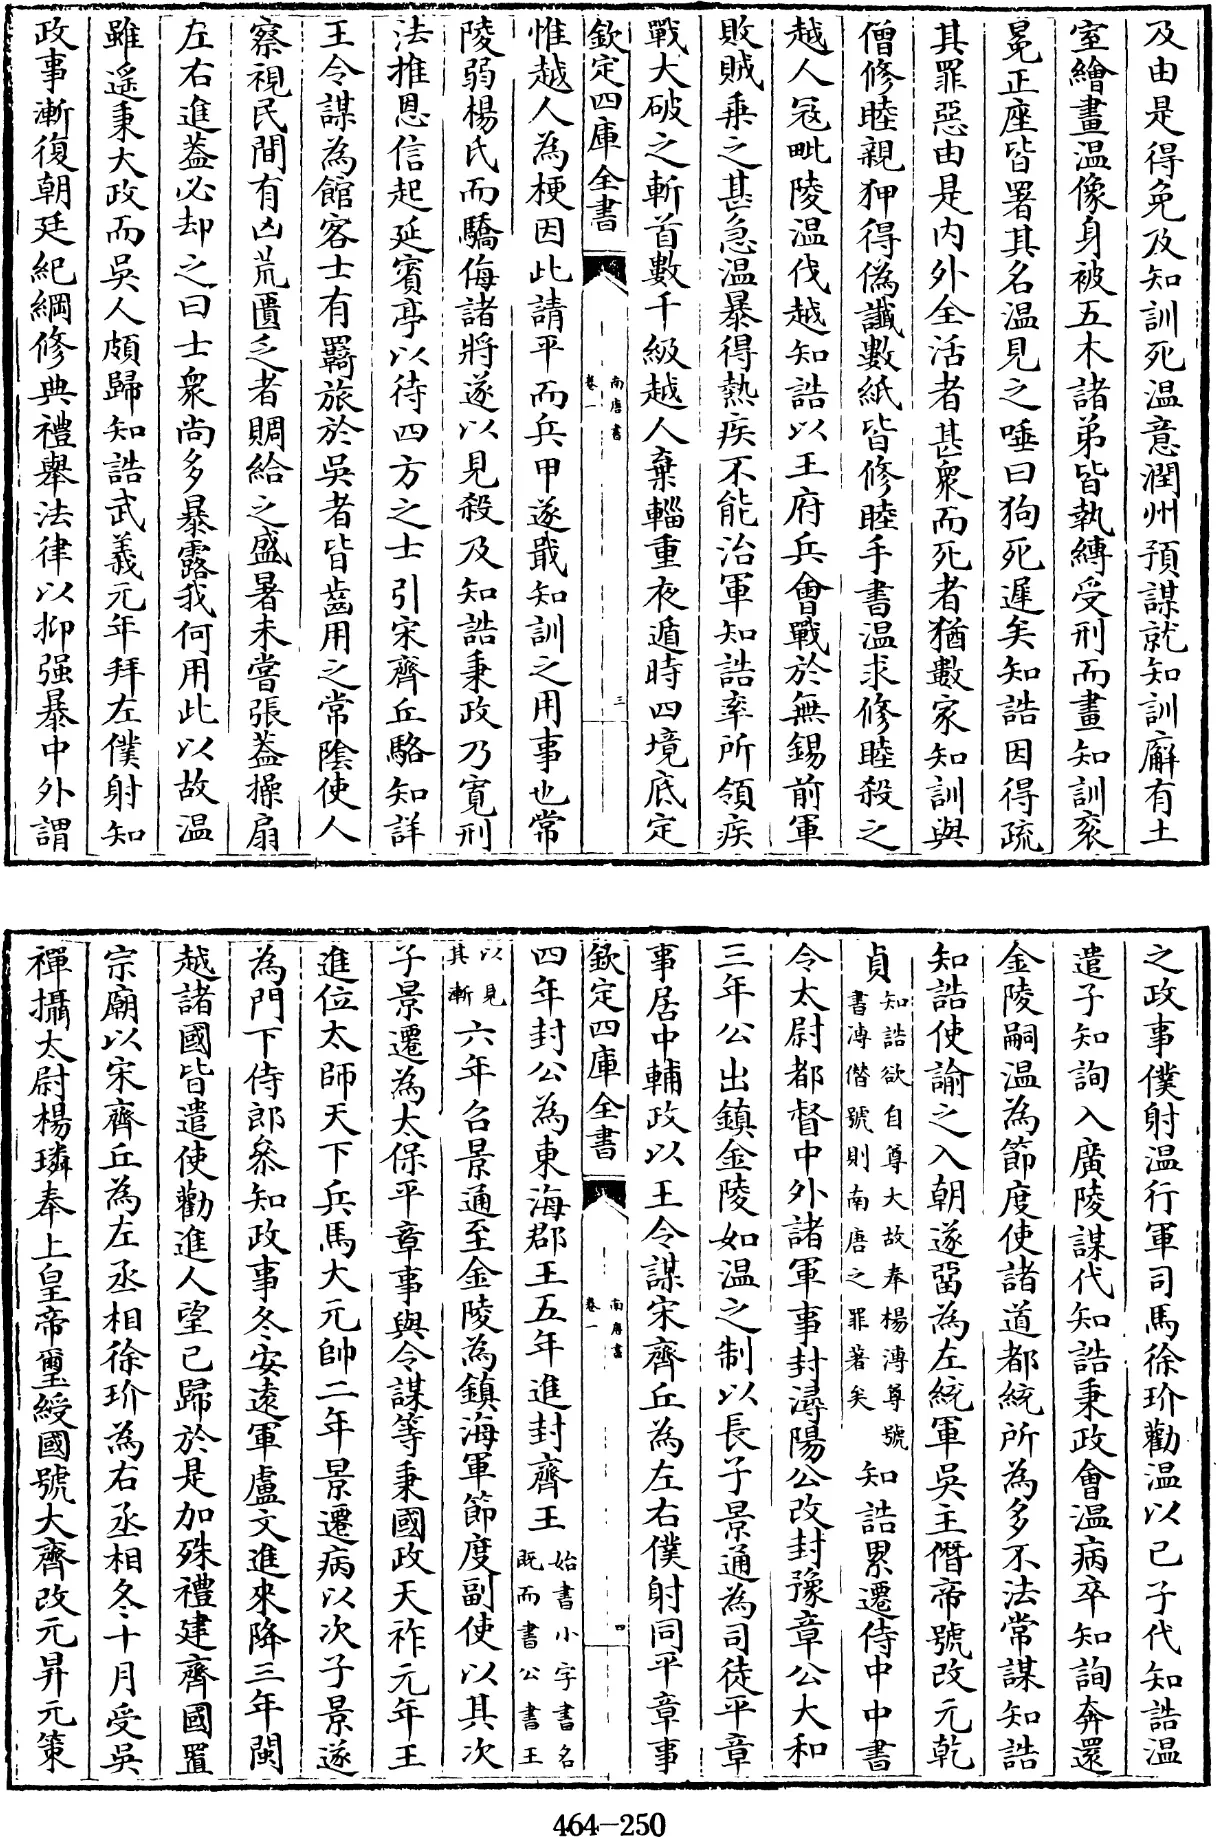 及由是得免及知訓死温意潤州預謀就知訓廨有土
室繪畫温像身被五木諸弟皆執縛受刑而畫知訓衮
冕正座皆署其名温見之唾曰狗死遲矣知誥因得疏
其罪惡由是内外全活者甚衆而死者猶數家知訓與
僧修睦親狎得偽讖數紙皆修睦手書温求修睦殺之
越人冦毗陵温伐越知誥以王府兵㑹戰於無錫前軍
敗賊乗之甚急温暴得熱疾不能治軍知誥率所領疾
戰大破之斬首數千級越人棄輜重夜遁時四境底定
欽定四庫全書
南唐書
卷一
三
惟越人為梗因此請平而兵甲遂戢知訓之用事也常
陵弱楊氏而驕侮諸將遂以見殺及知誥秉政乃寛刑
法推恩信起延賓亭以待四方之士引宋齊丘駱知詳
王令謀為館客士有羇旅於吳者皆齒用之常陰使人
察視民間有凶荒匱乏者賙給之盛暑未嘗張葢操扇
左右進葢必却之曰士衆尚多暴露我何用此以故温
雖遥秉大政而吳人頗歸知誥武義元年拜左僕射知
政事漸復朝廷紀綱修典禮舉法律以抑强暴中外謂
之政事僕射温行軍司馬徐玠勸温以已子代知誥温
遣子知詢入廣陵謀代知誥秉政會温病卒知詢奔還
金陵嗣温為節度使諸道都統所為多不法常謀知誥
知誥使諭之入朝遂留為左統軍吳主僭帝號改元乾
貞知誥欲自尊大故奉楊溥尊號
書溥僭號則南唐之罪著矣知誥累遷侍中中書
令太尉都督中外諸軍事封潯陽公改封豫章公大和
三年公出鎮金陵如温之制以長子景通為司徒平章
事居中輔政以王令謀宋齊丘為左右僕射同平章事
欽定四庫全書
南唐書
卷一
四
四年封公為東海郡王五年進封齊王始書小字書名
既而書公書王
以見
其漸六年召景通至金陵為鎮海軍節度副使以其次
子景遷為太保平章事與令謀等秉國政天祚元年王
進位太師天下兵馬大元帥二年景遷病以次子景遂
為門下侍郎叅知政事冬安逺軍盧文進來降三年閩
越諸國皆遣使勸進人望已歸於是加殊禮建齊國置
宗廟以宋齊丘為左丞相徐玠為右丞相冬十月受吳
禪攝太尉楊璘奉上皇帝璽綬國號大齊改元昇元策
464-250